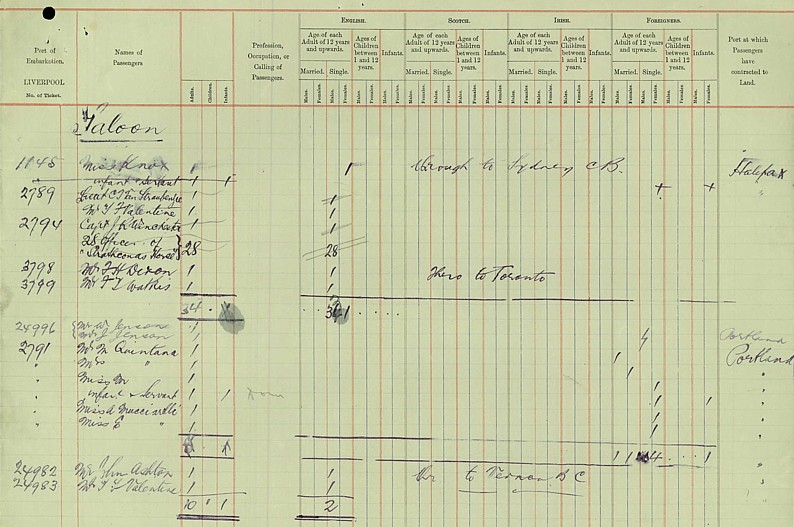 ENGLISH. SCOTCH. IRISH. FOREIGNERS.
Port of Embarkation. LIVERPOOL No. of Ticket.
Names of Passengers
Adults. Children. Infants.
Profession, Occupation, or Calling of Passengers.
Age of each Adult of 12 years and upwards. Ages of Children between 1 and 12 years. Infants.
Age of each Adult of 12 years and upwards. Ages of Children between 1 and 12 years. Infants.
Age of each Adult of 12 years and upwards. Ages of Children between 1 and 12 years. Infants.
Age of each Adult of 12 years and upwards. Ages of Children between 1 and 12 years. Infants.
Married. Single. Married. Single. Married. Single. Married. Single.
Males. Females. Males. Females. Males. Females. Males. Females. Males. Females. Males. Females. Males. Females. Males. Females. Males. Females. Males. Females. Males. Females. Males. Females. Males. Females. Males. Females. Males. Females. Males. Females.
Port at which Passengers have contracted to Land.
Saloon
1145 Miss Knox 1 1 through to Sydney C B. Halifax
infant & Servant 1 1 + + "
2789 Lieut C T Van Straubenzee 1 1
Mr T F Valentine 1 1
2794 Capt J R Winchester 1 1
28 Officers of "Strathconas Horse" 28 28
3798 Mr F H Dixon 1 1 thro to Toronto
3799 Mr F L 1 1
34 1 34 1
24996 Mr W Jenson 1 Portland
Mr J Jenson 1
2791 Mr M Quintana 1 1 Portland
" Mrs " 1 1 "
" Miss M 1 1 "
" infant & Servant 1 1 1 1 "
" Miss A Mucciarelli 1 1 "
" Miss E " 1 1 "
8 1 1 1 4 1
24982 Mr John Ashton 1 1 thr to Vernon B C "
24983 Mr T L Valentine 1 1 "
10 " 1 2